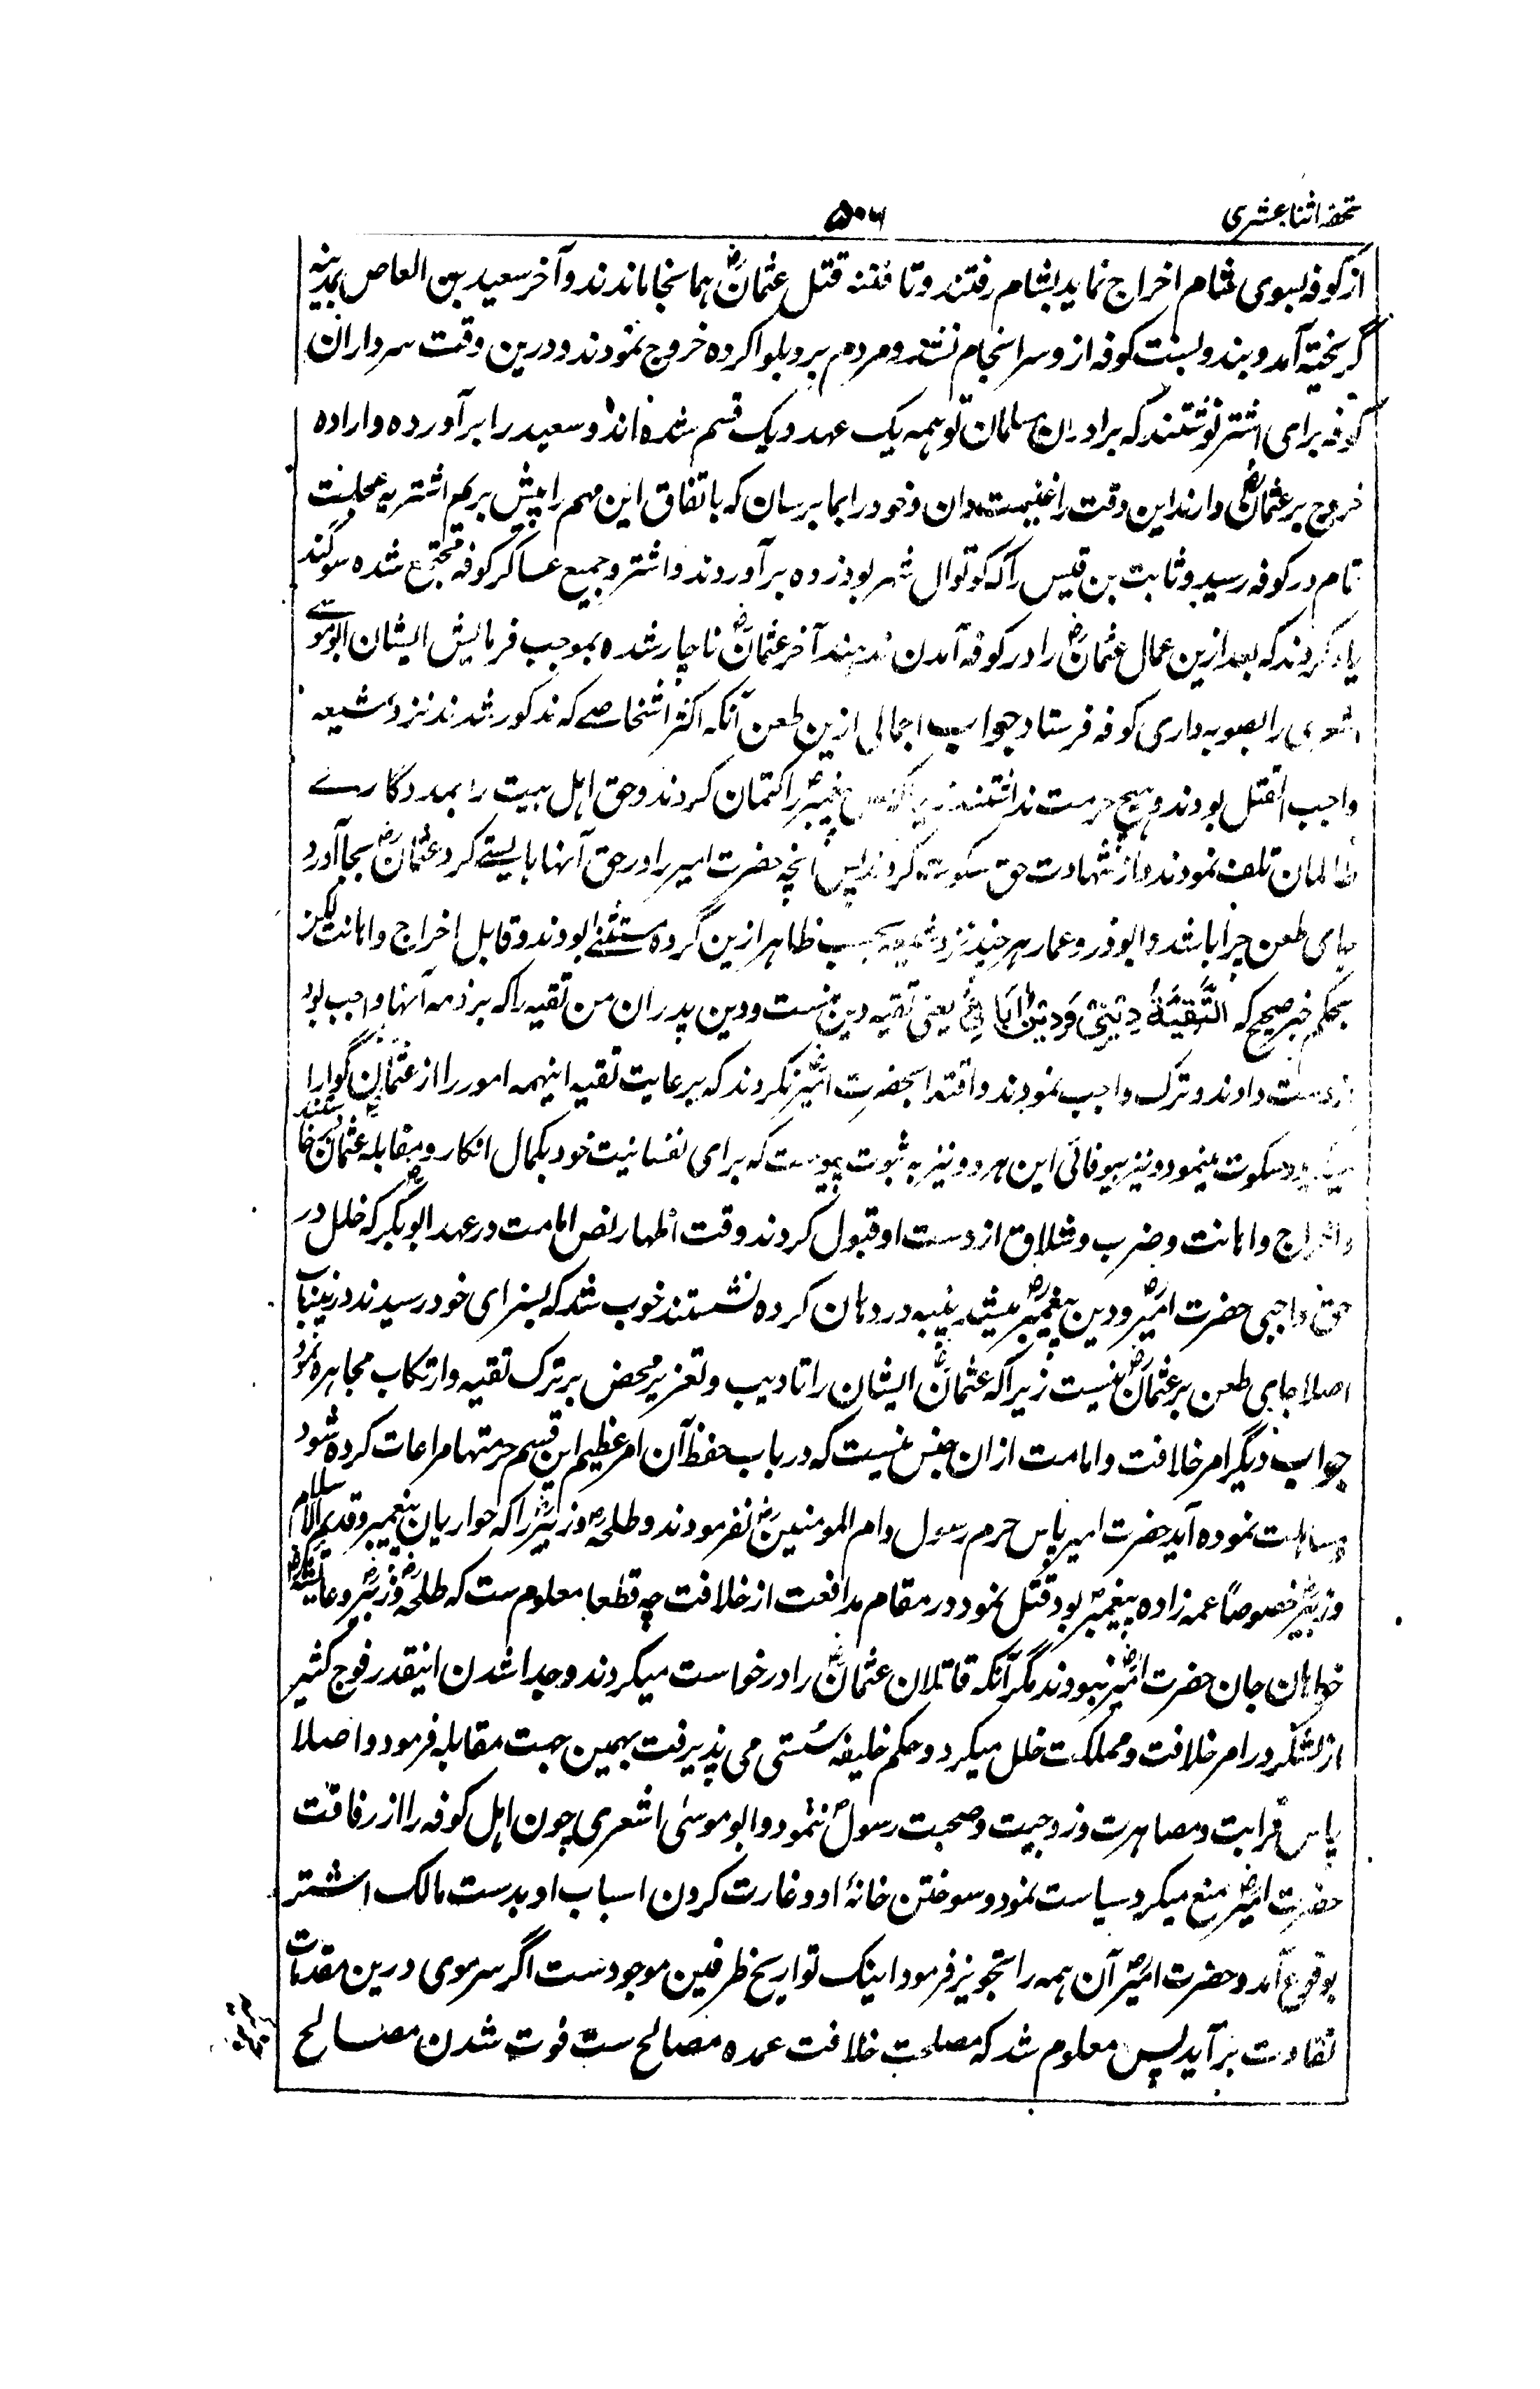 تحفه اثنا عشری
۵۰۶
از کوفه بسوی شام اخراج نماید بشام رفتند و تا فتنه قتل عثمانؓ همانجا ماندند و آخر سعید بن العاص بمدینه
گریخته آمد و بند و بست کوفه از و سرانجام نشد و مردم برو بلوا کرده خروج نمودند و درین وقت سرداران
کوفه برای اشتر نوشتند که برادران مسلمان تو همه یک عهد و یک قسم شده اند و سعید را برآورده و اراده
خروج بر عثمانؓ دارند این وقت را غنیمت دان و خود را بما برسان که باتفاق این مهم را پیش بریم اشتر به عجلت
تمام در کوفه رسید و ثابت بن قیس را که کوتوال شهر بود زده برآوردند و اشتر و جمیع عساکر کوفه مجتمع شده سوگند
یاد کردند که بعد ازین عمال عثمانؓ را در کوفه آمدن ندهند آخر عثمانؓ ناچار شده بموجب فرمایش ایشان ابو موسے
اشعری را بصوبه داری کوفه فرستاد جواب اجمالی ازین طعن آنکه اکثر اشخاصے که مذکور شدند نزد شیعه
واجب القتل بودند و هیچ حرمت نداشتند زیراکه نص پیغمبرؐ را کتمان کردند و حق اهل بیت را بمددگارے
ظالمان تلف نمودند و از شهادت حق سکوت کردند پس آنچه حضرت امیر را در حق آنها بایستے کرد عثمانؓ بجا آورد
جای طعن چرا باشد و ابوذر و عمار هر چند نزد شیعه بحسب ظاهر ازین گروه مستثنے بودند و قابل اخراج و اهانت لیکن
بحکم خبر صحیح که اَلتَّقِیَّةُ دِیْنِیْ وَدِیْنُ اٰبَائِیْ یعنی تقیه دین منست و دین پدران من تقیه را که بر ذمه آنها واجب بود
از دست دادند و ترک واجب نمودند و اقتدا بحضرت امیرؓ نکردند که برعایت تقیه اینهمه امور را از عثمان گوارا
میکرد و سکوت مینمود و نیز بیوفائی این هر دو نیز به ثبوت پیوست که برای نفسانیت خود بکمال انکار و مقابله عثمانؓ برخاستند
و اخراج و اهانت و ضرب و شلاق از دست او قبول کردند وقت اظهار نص امامت در عهد ابوبکرؓ که خلل در
حق واجبی حضرت امیرؓ و دین پیغمبرؐ میشد پنبه در دهان کرده نشستند خوب شد که بسزای خود رسیدند درینباب
اصلا جای طعن بر عثمانؓ نیست زیراکه عثمانؓ ایشان را تادیب و تعزیر محض بر ترک تقیه و ارتکاب مجاهره نمود
جواب دیگر امر خلافت و امامت از ان جنس نیست که در باب حفظ آن امر عظیم این قسم حرمتها مراعات کرده شود
و مساهلت نموده آید حضرت امیر پاس حرم رسول و ام المومنینؓ نفرمودند و طلحهؓ و زبیرؓ را که حواریان پیغمبر و قدیم الاسلام
و زبیرؓ خصوصاً عمه زاده پیغمبرؐ بود قتل نمود در مقام مدافعت از خلافت چه قطعا معلوم ست که طلحهؓ و زبیرؓ و عائشهؓ
خواهان جان حضرت امیرؓ نبودند مگر آنکه قاتلان عثمانؓ را درخواست میکردند و جدا شدن اینقدر فوج کثیر
از لشکر در امر خلافت و مملکت خلل میکرد و حکم خلیفه سُستی می پذیرفت بهمین جهت مقابله فرمود و اصلا
پاس قرابت و مصاهرت و زوجیت و صحبت رسولؐ ننمود و ابو موسیٰ اشعری چون اهل کوفه را از رفاقت
حضرت امیرؓ منع میکرد سیاست نمود و سوختن خانهٔ او و غارت کردن اسباب او بدست مالک اشتر
بوقوع آمد و حضرت امیرؓ آن همه را تجویز فرمود اینک تواریخ طرفین موجود ست اگر سرموی درین مقدمات
تفاوت برآید پس معلوم شد که مصلحت خلافت عمده مصالح ست فوت شدن مصالح